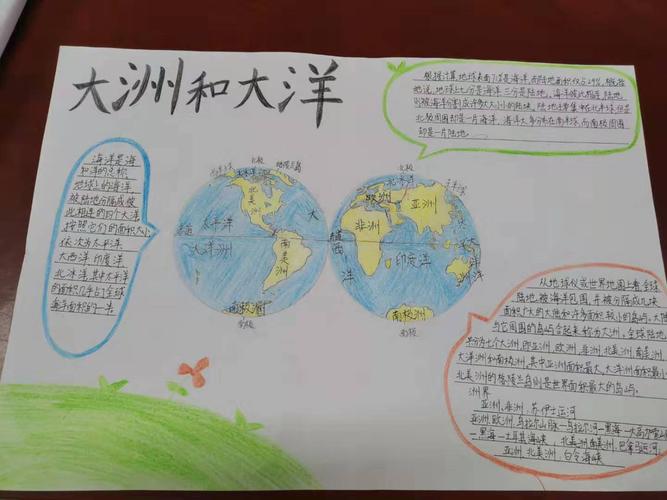 大洲和大洋
根据计算地球表面71%是海洋,而陆地面积仅占29%,概括
地说,地球上七分是海洋,三分是陆地。海洋彼此相连,陆地
则被海洋分割成许多大大小小的陆块。陆地主要集中在北半球,但是
北极周围却是一片海洋,海洋大多分布在南半球,而南极周围
却是一片陆地。
海洋是海
和洋的总称,
地球上的海洋
被陆地分隔成彼
此相连的四个大洋
按照它们的面积大小
依次为太平洋
大西洋 印度洋
北冰洋,其中太平洋
的面积几乎占全球
海洋面积的一半
北极
格陵兰岛
北冰洋
北美洲
太平洋
大
赤道
大洋洲
南美洲
南极洲
南极
北极
北冰洋
欧洲
亚洲
太平洋
非洲
赤道
西
洋
印度洋
大洋洲
南极洲
南极
从地球仪或世界地图上看,全球
陆地被海洋包围,并被分隔成几块
面积广大的大陆和许多面积较小的岛屿。大陆
与它周围的岛屿合起来称为大洲。全球陆地
共分为七个大洲,即亚洲,欧洲,非洲,北美洲,南美洲,
大洋洲和南极洲,其中亚洲面积最大,大洋洲面积最小
北美洲的格陵兰岛则是世界面积最大的岛屿。
洲界
亚洲,非洲,苏伊士运河
亚洲,欧洲,乌拉尔山脉—乌拉尔河—里海—大高加索山
—黑海—土耳其海峡,北美洲南美洲,巴拿马运河
亚洲,北美洲,白令海峡